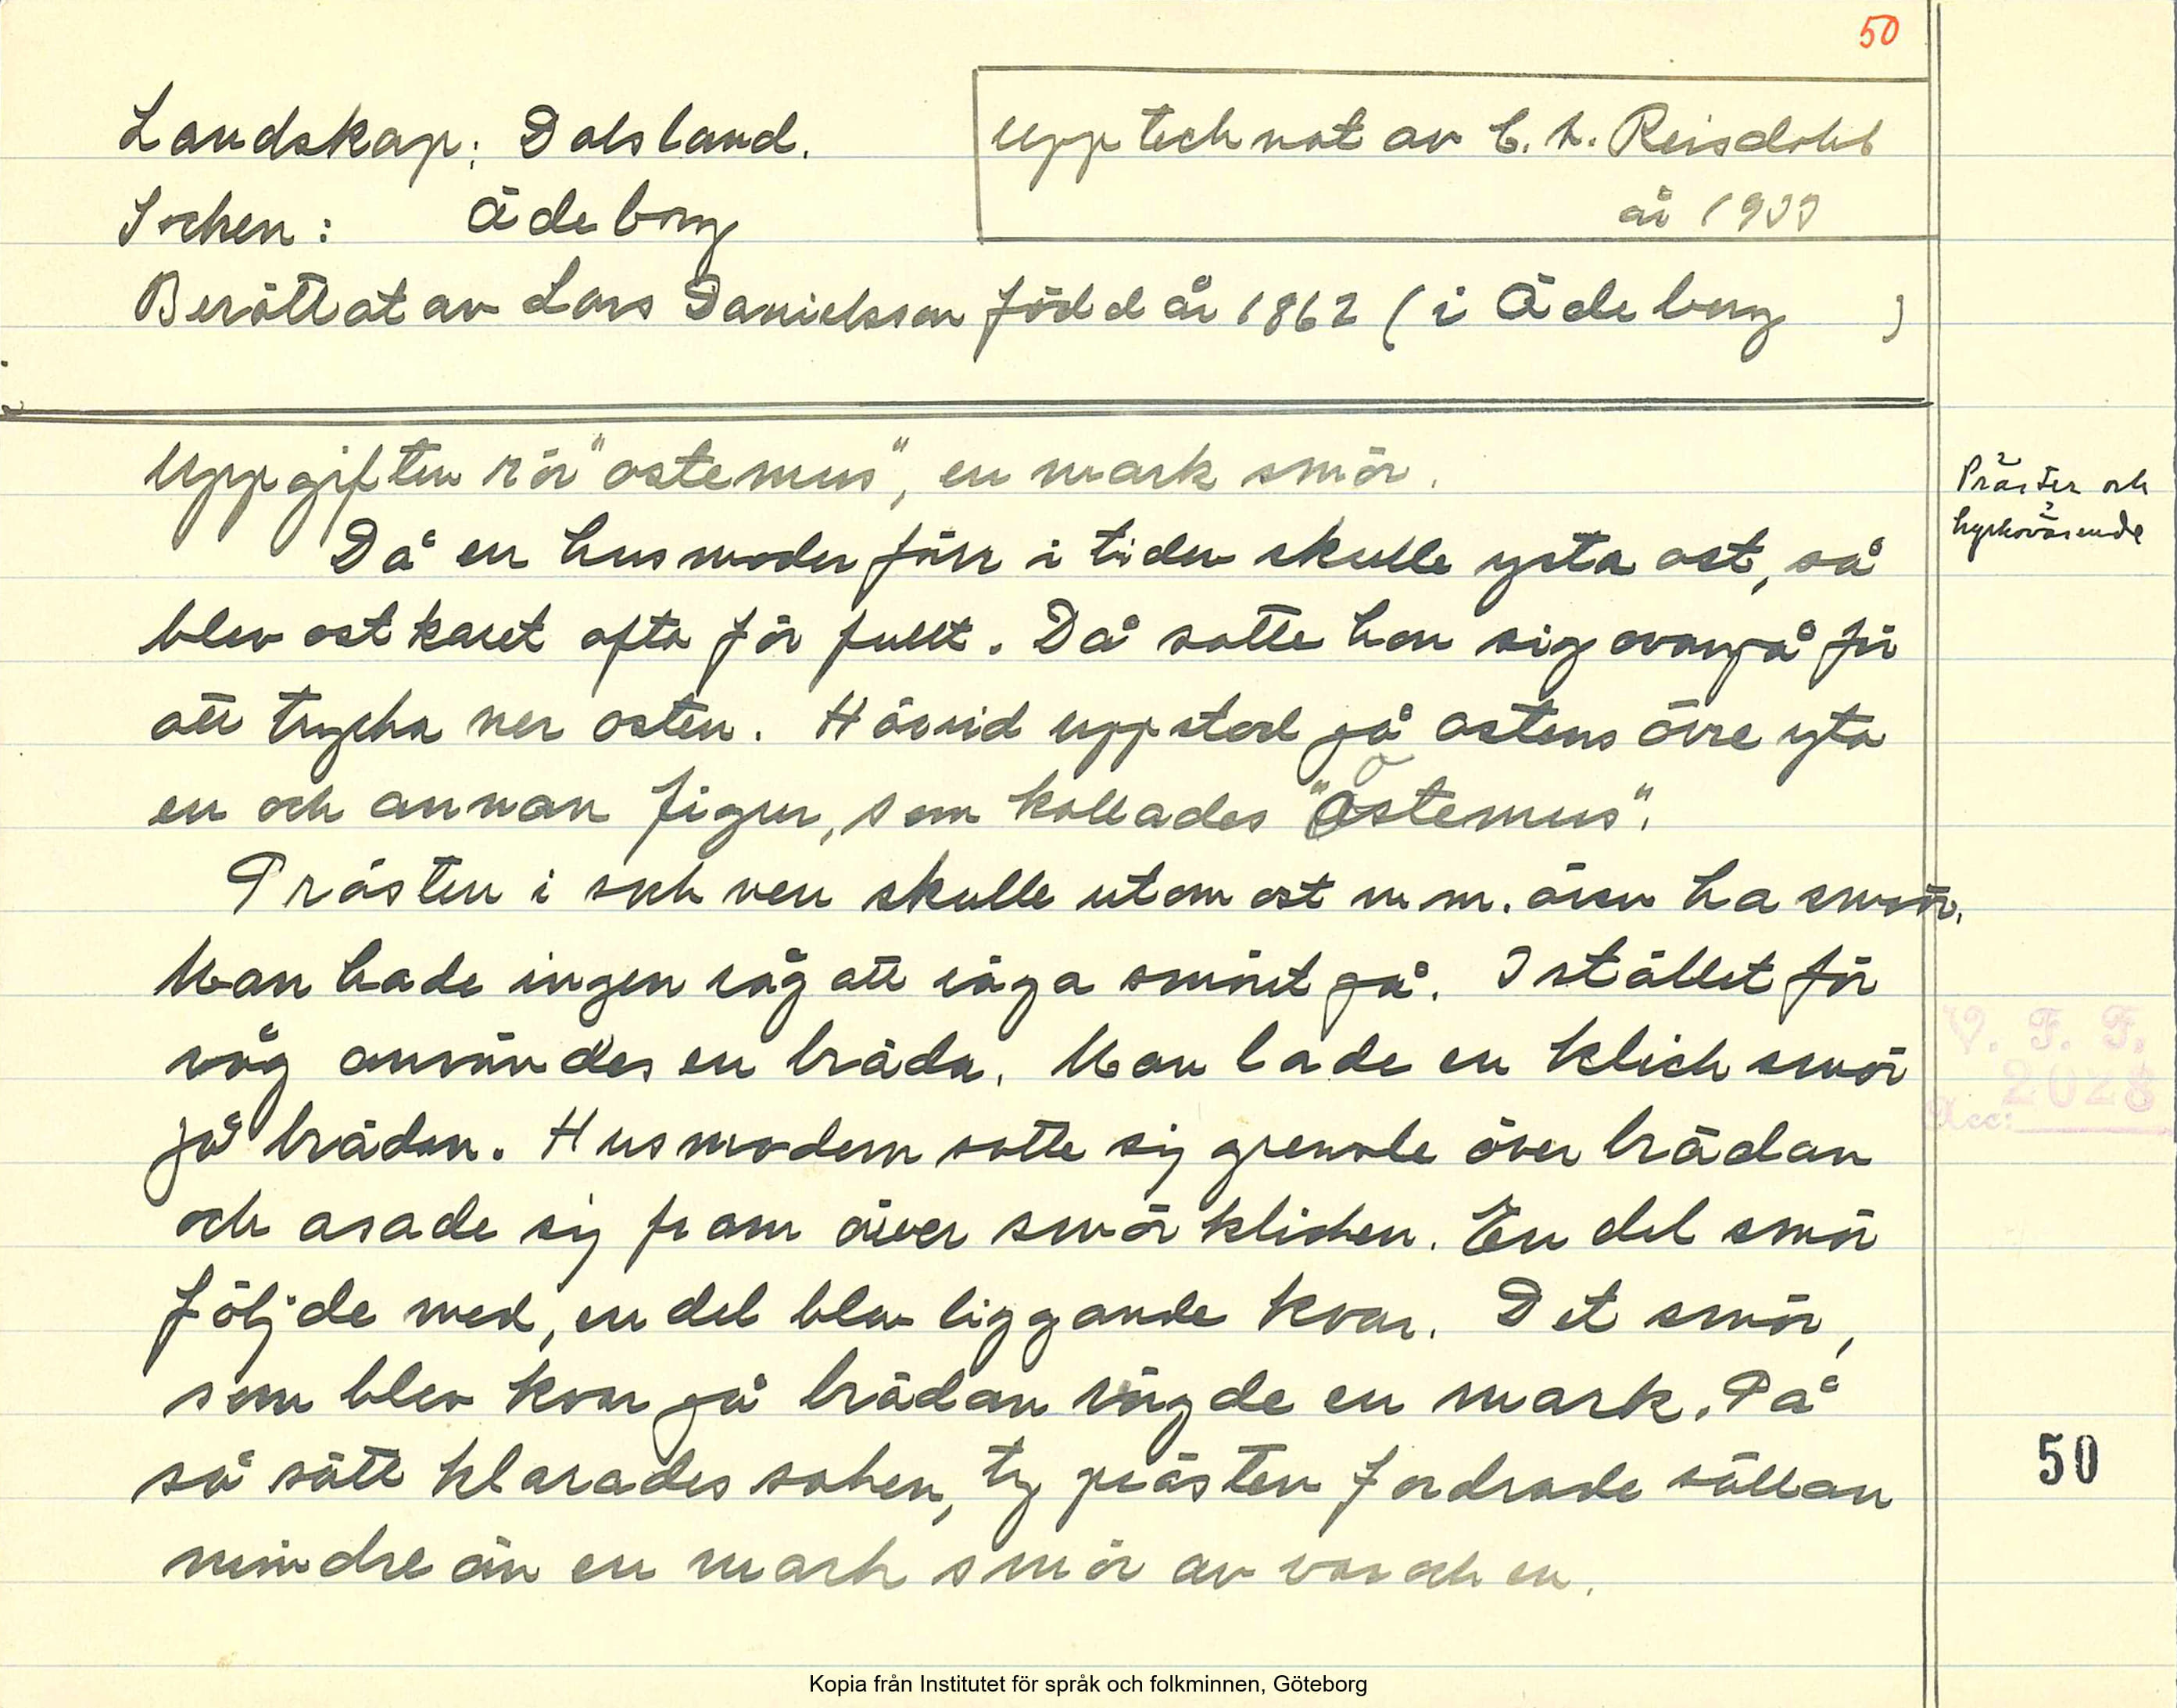 50
Landskap: Dalsland.
Upptecknat av C. L.
år 1933
Socken: Ädeborg
Berättat av Lars Danielsson född år 1862 (i Ädeborg )
Uppgiften rör "ostemus", en mark smör.
Präster och
kyrkoväsende
Då en husmoder förr i tiden skulle ysta ost, så
blev ostkaret ofta för fullt. Då satte hon sig ovanpå för
att trycka ner osten. Härvid uppstod på ostens övre yta
en och annan figur, som kallades "Östemus".
Prästen i socknen skulle utom ost m.m. även ha smör.
Man hade ingen våg att väga smöret på. I stället för
våg användes en bräda. Man lade en klick smör
på brädan. Husmodern satte sig grensle över brädan
och asade sig fram över smörklicken. En del smör
följde med, en del blev liggande kvar. Det smör,
som blev kvar på brädan vägde en mark. På
så sätt klarades saken, ty prästen fordrade sällan
mindre än en mark smör av var och en.
V. F. F.
Acc: 2028
50
Kopia från Institutet för språk och folkminnen, Göteborg